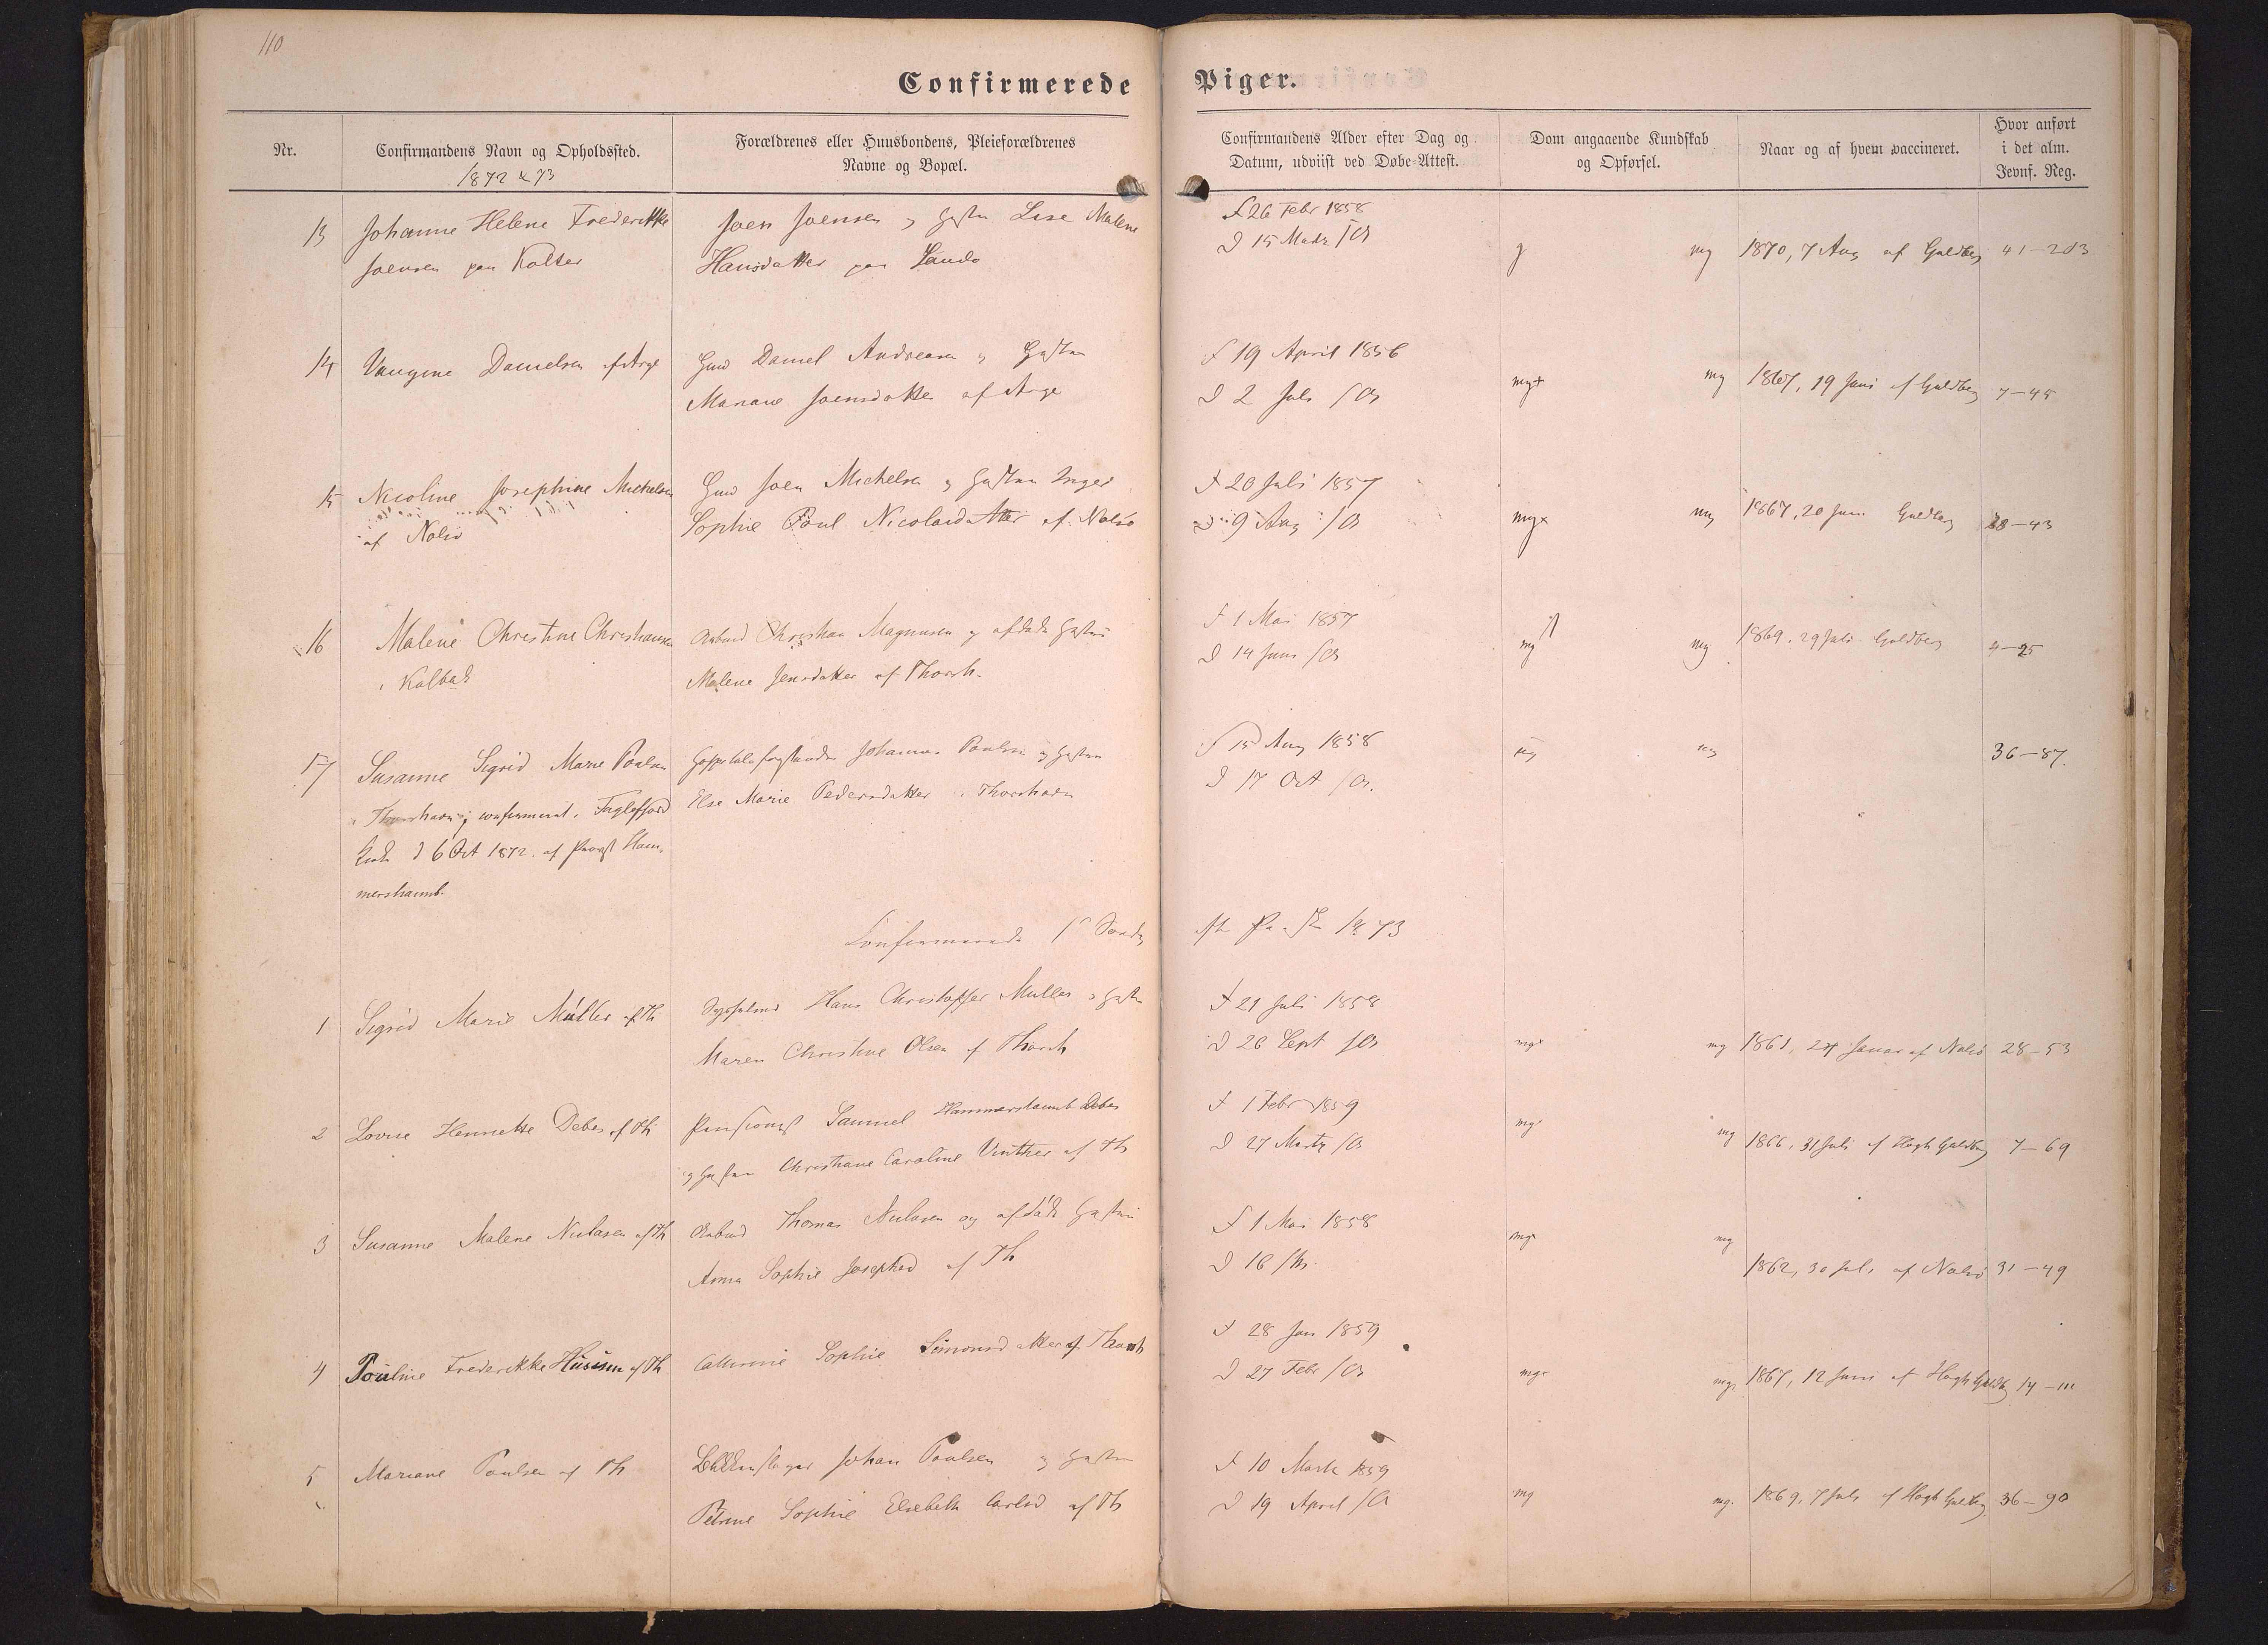 110
Confirmerede Piger.
Nr.
Confirmandens Navn og Opholdssted.
1872 & 73
Forældrenes eller Huusbondens, Pleieforældrenes
Navne og Bopæl.
Confirmandens Alder efter Dag og
Datum, udviist ved Døbe-Attest.
Dom angaaende Kundskab
og Opførsel.
Naar og af hvem vaccineret.
Hvor anført
i det alm.
Jevnf. Reg.
13 Johanne Helene Frederikke Joen Joensen og Hustru Lise Malene f 26 Febr 1858
Joensen paa Kolter Hansdatter paa Sandø D 15 Marts g mg 1870, 7 Aug af Guldberg 41-203
14 Daniel Andreasen og Hustru f 19 April 1856
Danielsen af Arge Joensdatter af Arge D 2 Juli mg+ mg 1867, 19 Juni af Guldberg 7-45
15 Nicoline Josephine Michelsen Joen Michelsen og Hustru Inger f 20 Juli 1857
af Nolsø Sophie Poul Nicolaidatter af Nolsø D 9 Aug mg+ mg 1867, 20 Juni Guldberg 43
16 Malene Christine Christiansen Christian Magnusen og afdøde Hustru f 1 Mai 1857
i Kalbak Malene Jensdatter af Thorsh. D 14 Juni mg mg 1869, 29 Juli Guldberg 4-25
17 Susanne Sigrid Marie Poulsen Hospitalsforstander Johannes Poulsen og Hustru f 15 Aug 1858 36-87.
i Thorshavn, confirmeret i Fuglefjord Else Marie Pedersdatter i Thorshavn D 17 Oct
Kirke d 6 Oct 1872 af Provst Ham-
mershaimb.
Confirmerede 1ste Søndag eft. Paaske 1873
1 Sigrid Marie Müller af Th Sysselmd Hans Christopher Müller og Hustru f 21 Juli 1858
Maren Christine Olsen af Thorsh D 26 Sept mg+ mg 1861, Januar af Nolsø 28-53
2 Lovise Henriette Debes af Th Samuel Hammershaimb Debes f 1 Febr 1859
og Hustru Christiane Caroline Winther af Th D 27 Marts mg mg 1866, 31 Juli af Høgh Guldberg 7-69
3 Susanne Malene af Th Thomas og afdøde Hustru f 1 Mai 1858
Anna Sophie Josephsd af Th D 16 mg mg 1862, 30 Juli af Nolsø 31-49
4 Pouline Frederikke Husum af Th Cathrine Sophie Simonsdatter af Thorsh f 28 Jan 1859
D 27 Febr mg mg 1867, 12 Juni af Høgh Guldb 14-111
5 Mariane Poulsen af Th Johan Poulsen og Hustru f 10 Marts 1859
Petrine Sophie Elsebeth af Th D 19 April mg mg. 1869, 7 Juli af Høgh Guldberg 36-90